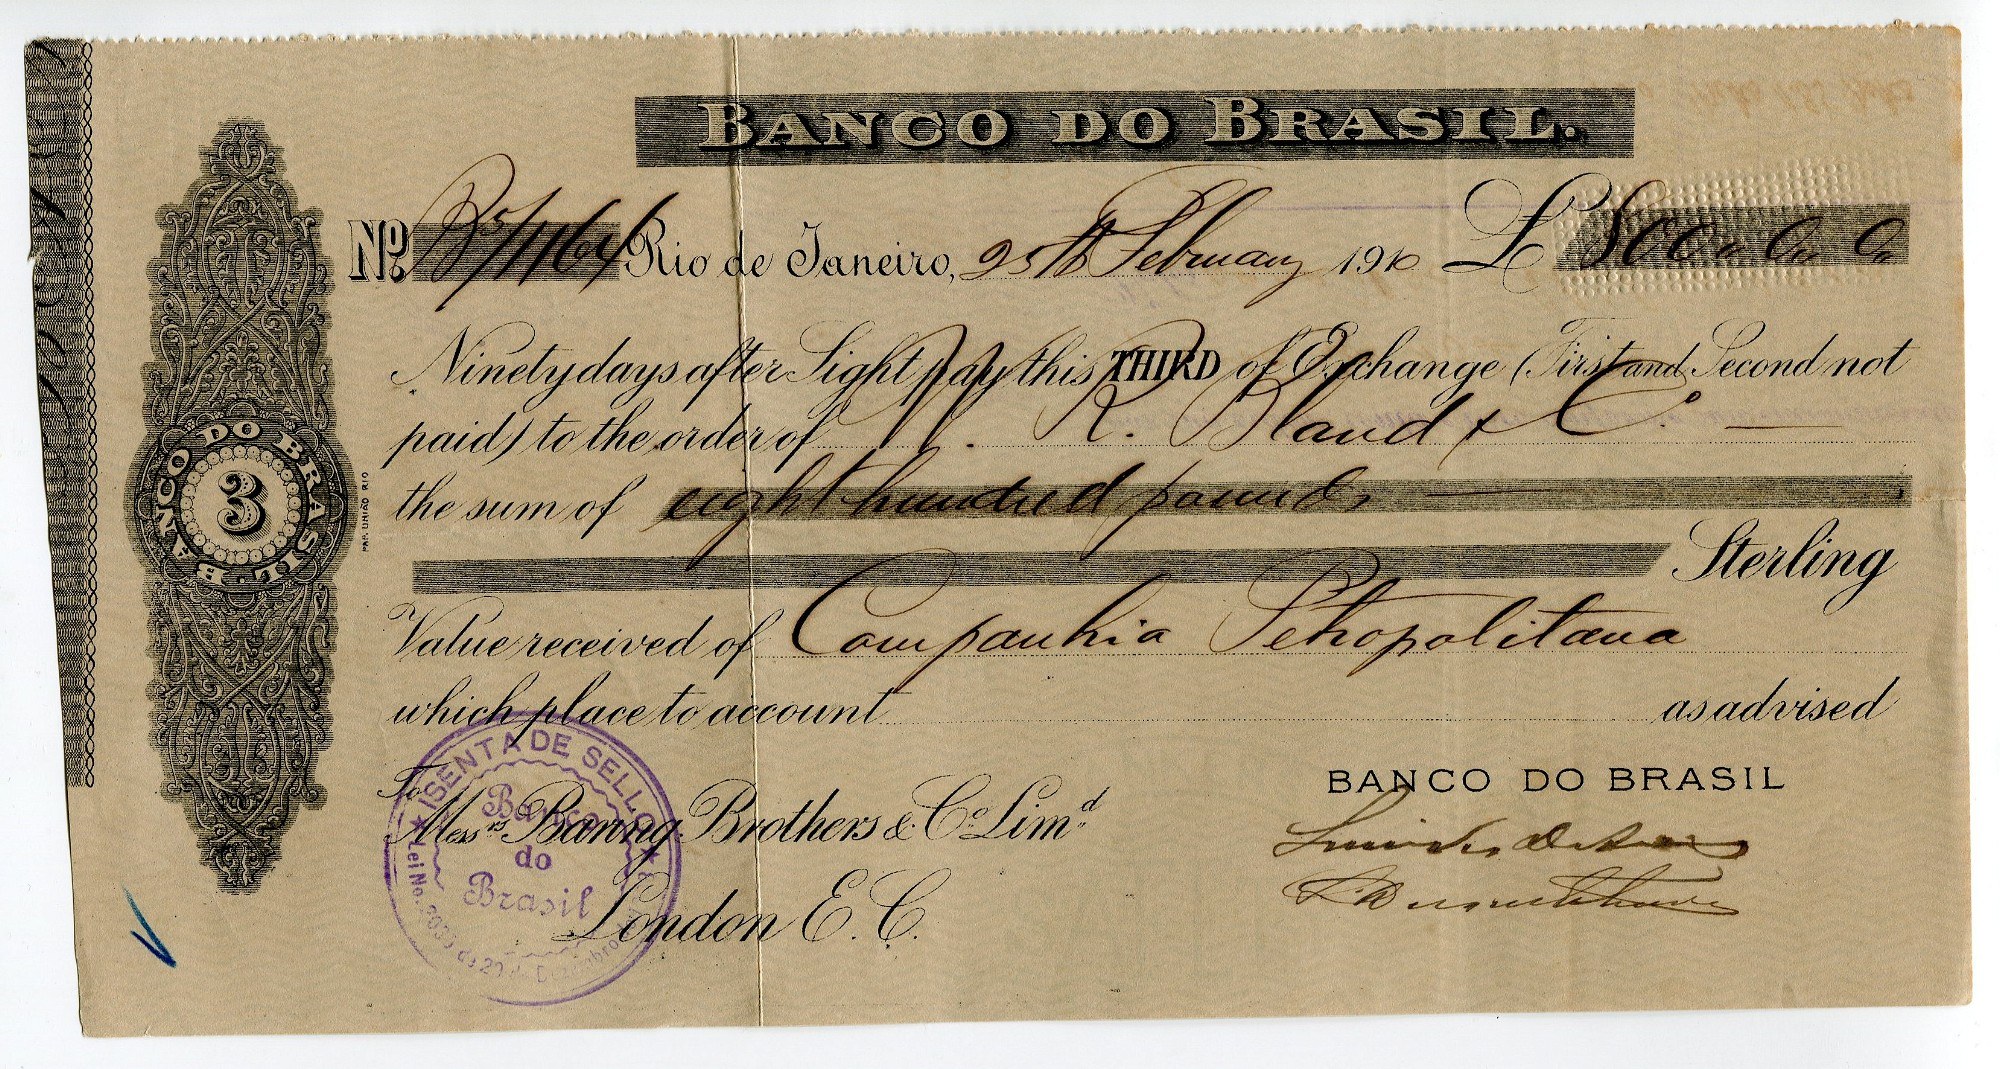 BANCO DO BRASIL.
No. B5/1164 Rio de Janeiro, 25th February 1910 £ 800.0.0
Ninety days after Sight pay this THIRD of Exchange (First and Second not
paid) to the order of N. R. Bland & Co.
the sum of eight hundred pounds
Sterling
Value received of Companhia Petropolitana
which place to account as advised
BANCO DO BRASIL
To
Messrs Baring Brothers & Co. Limd
London E. C.
BANCO DO BRASIL
3
PAP. UNIÃO RIO
ISENTA DE SELLO
Banco
do
Brasil
Lei No.